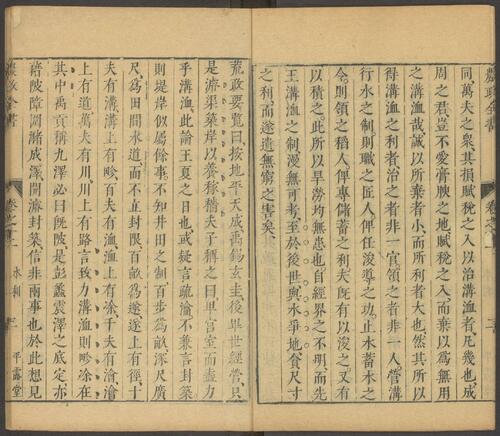 同萬夫之衆其損賦稅之入以治溝洫者凡幾也成
周之君豈不愛膏腴之地賦稅之入而棄以爲無用
之溝洫哉誠以所棄者小而所利者大也然其所以
得溝洫之利者治之者非一官領之者非一人營溝
行水之制則職之匠人俾任浚導之功止水蓄水之
令則領之稻人俾專儲蓄之利夫既有以浚之又有
以積之此所以旱勞均無患也自經界之不明而先
王溝洫之制漫無可考至於後世與水爭地貪尺寸
之利而遂遺無窮之害矣
荒政要覽曰按地平天成禹錫玄圭後畢世經營只
是濬渠築岸以養稼穡夫子稱之曰卑宮室而盡力
乎溝洫此論王夏之日也或疑言疏瀹不兼言封築
則堤岸似屬餘事不知井田之制百步爲畝深尺廣
尺爲田間水道而不立封限百畝爲遂遂上有徑十
夫有溝溝上有畛百夫有洫洫上有涂千夫有澮澮
上有道萬夫有川川上有路言致力溝洫則畛涂在
其中禹貢稱九澤必曰既陂是彭蠡震澤之底定亦
藉陂障圍瀦成澤開濬封築信非兩事也於此想見
農政全書
卷之十二
水利
三
平露堂